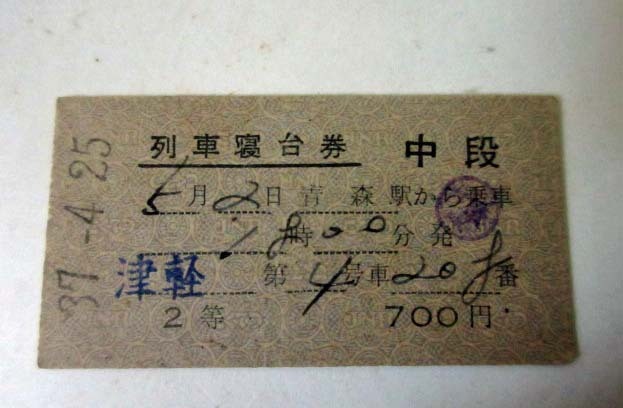 37-4.25
列車寝台券 中段
5月2日 青森駅から乗車
18時00分発
津軽 第4号車20番
2等 700円